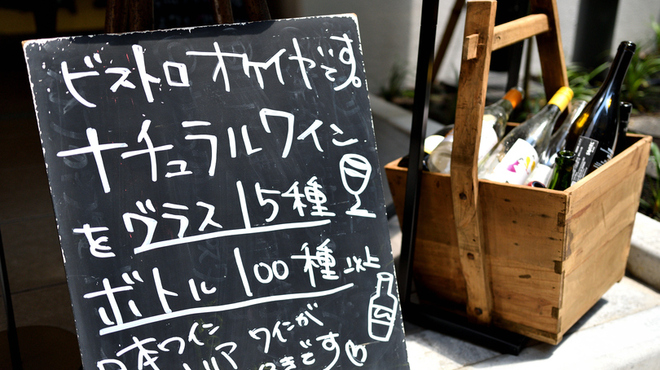 ビストロ オケイヤです。
ナチュラルワイン
をグラス15種
ボトル100種以上
日本ワイン ワインが
です